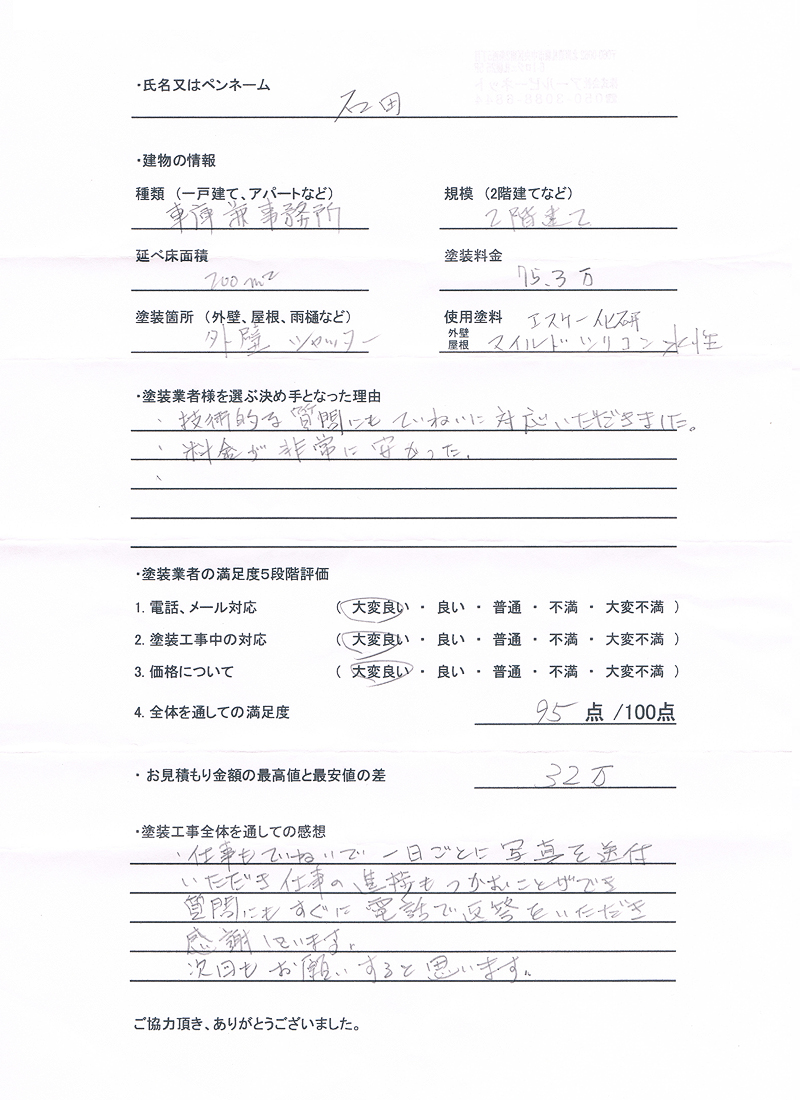 ・氏名又はペンネーム
石田
・建物の情報
種類 (一戸建て、アパートなど) 規模 (2階建てなど)
車庫兼事務所 2階建て
延べ床面積 塗装料金
200m² 75.3万
塗装箇所 (外壁、屋根、雨樋など) 使用塗料 エスケー化研
外壁 シャッター 外壁 屋根 マイルドシリコン 水性
・塗装業者様を選ぶ決め手となった理由
・技術的な質問にもていねいに対応いただきました。
・料金が非常に安かった。
、
・塗装業者の満足度5段階評価
1. 電話、メール対応 ( 大変良い ・ 良い ・ 普通 ・ 不満 ・ 大変不満 )
2. 塗装工事中の対応 ( 大変良い ・ 良い ・ 普通 ・ 不満 ・ 大変不満 )
3. 価格について ( 大変良い ・ 良い ・ 普通 ・ 不満 ・ 大変不満 )
4. 全体を通しての満足度 95 点 /100点
・ お見積もり金額の最高値と最安値の差 32万
・塗装工事全体を通しての感想
・仕事もていねいで一日ごとに写真を送付
いただき仕事の進捗もつかむことができ
質問にもすぐに電話で返答をいただき
感謝しています。
次回もお願いすると思います。
ご協力頂き、ありがとうございました。